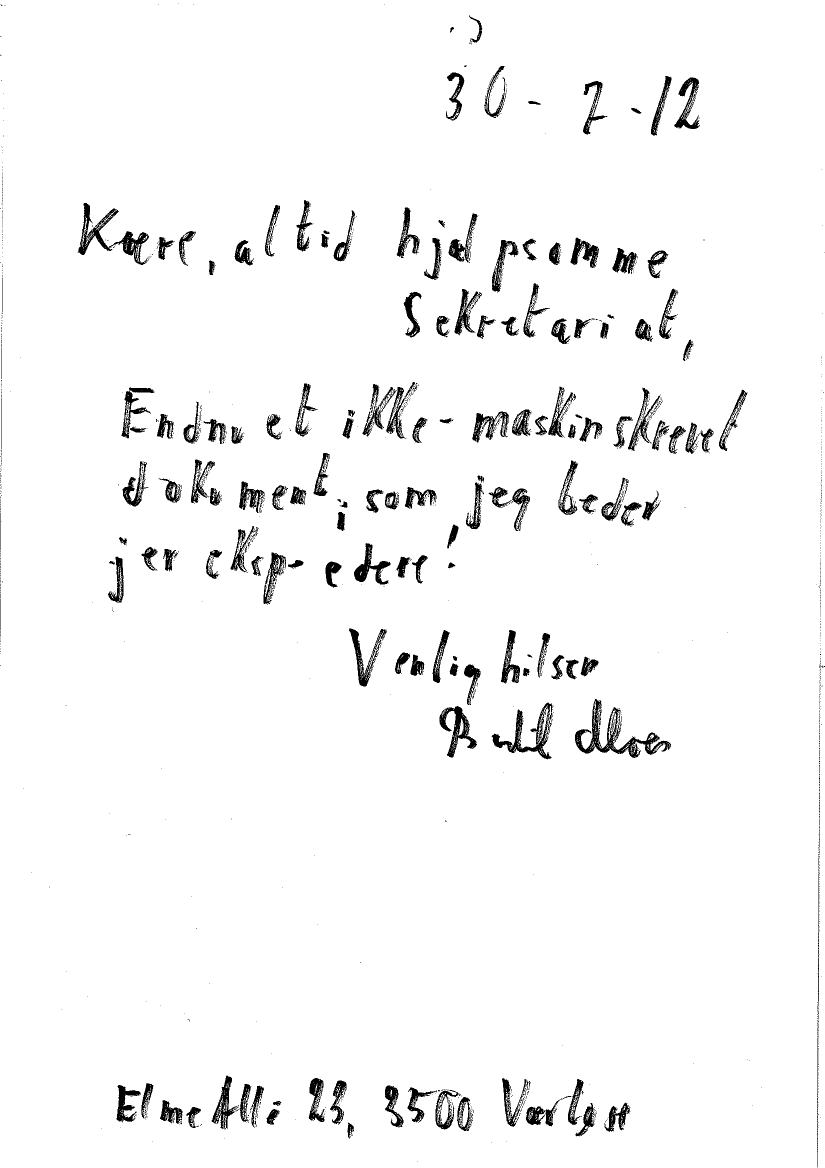 30-7-12
Kære, altid hjælpsomme
Sekretariat,
Endnu et ikke-maskinskrevet
dokument, som jeg beder
jer eksp-edere!
Venlig hilsen
Bertil
Elme Alle 23, 3500 Værløse